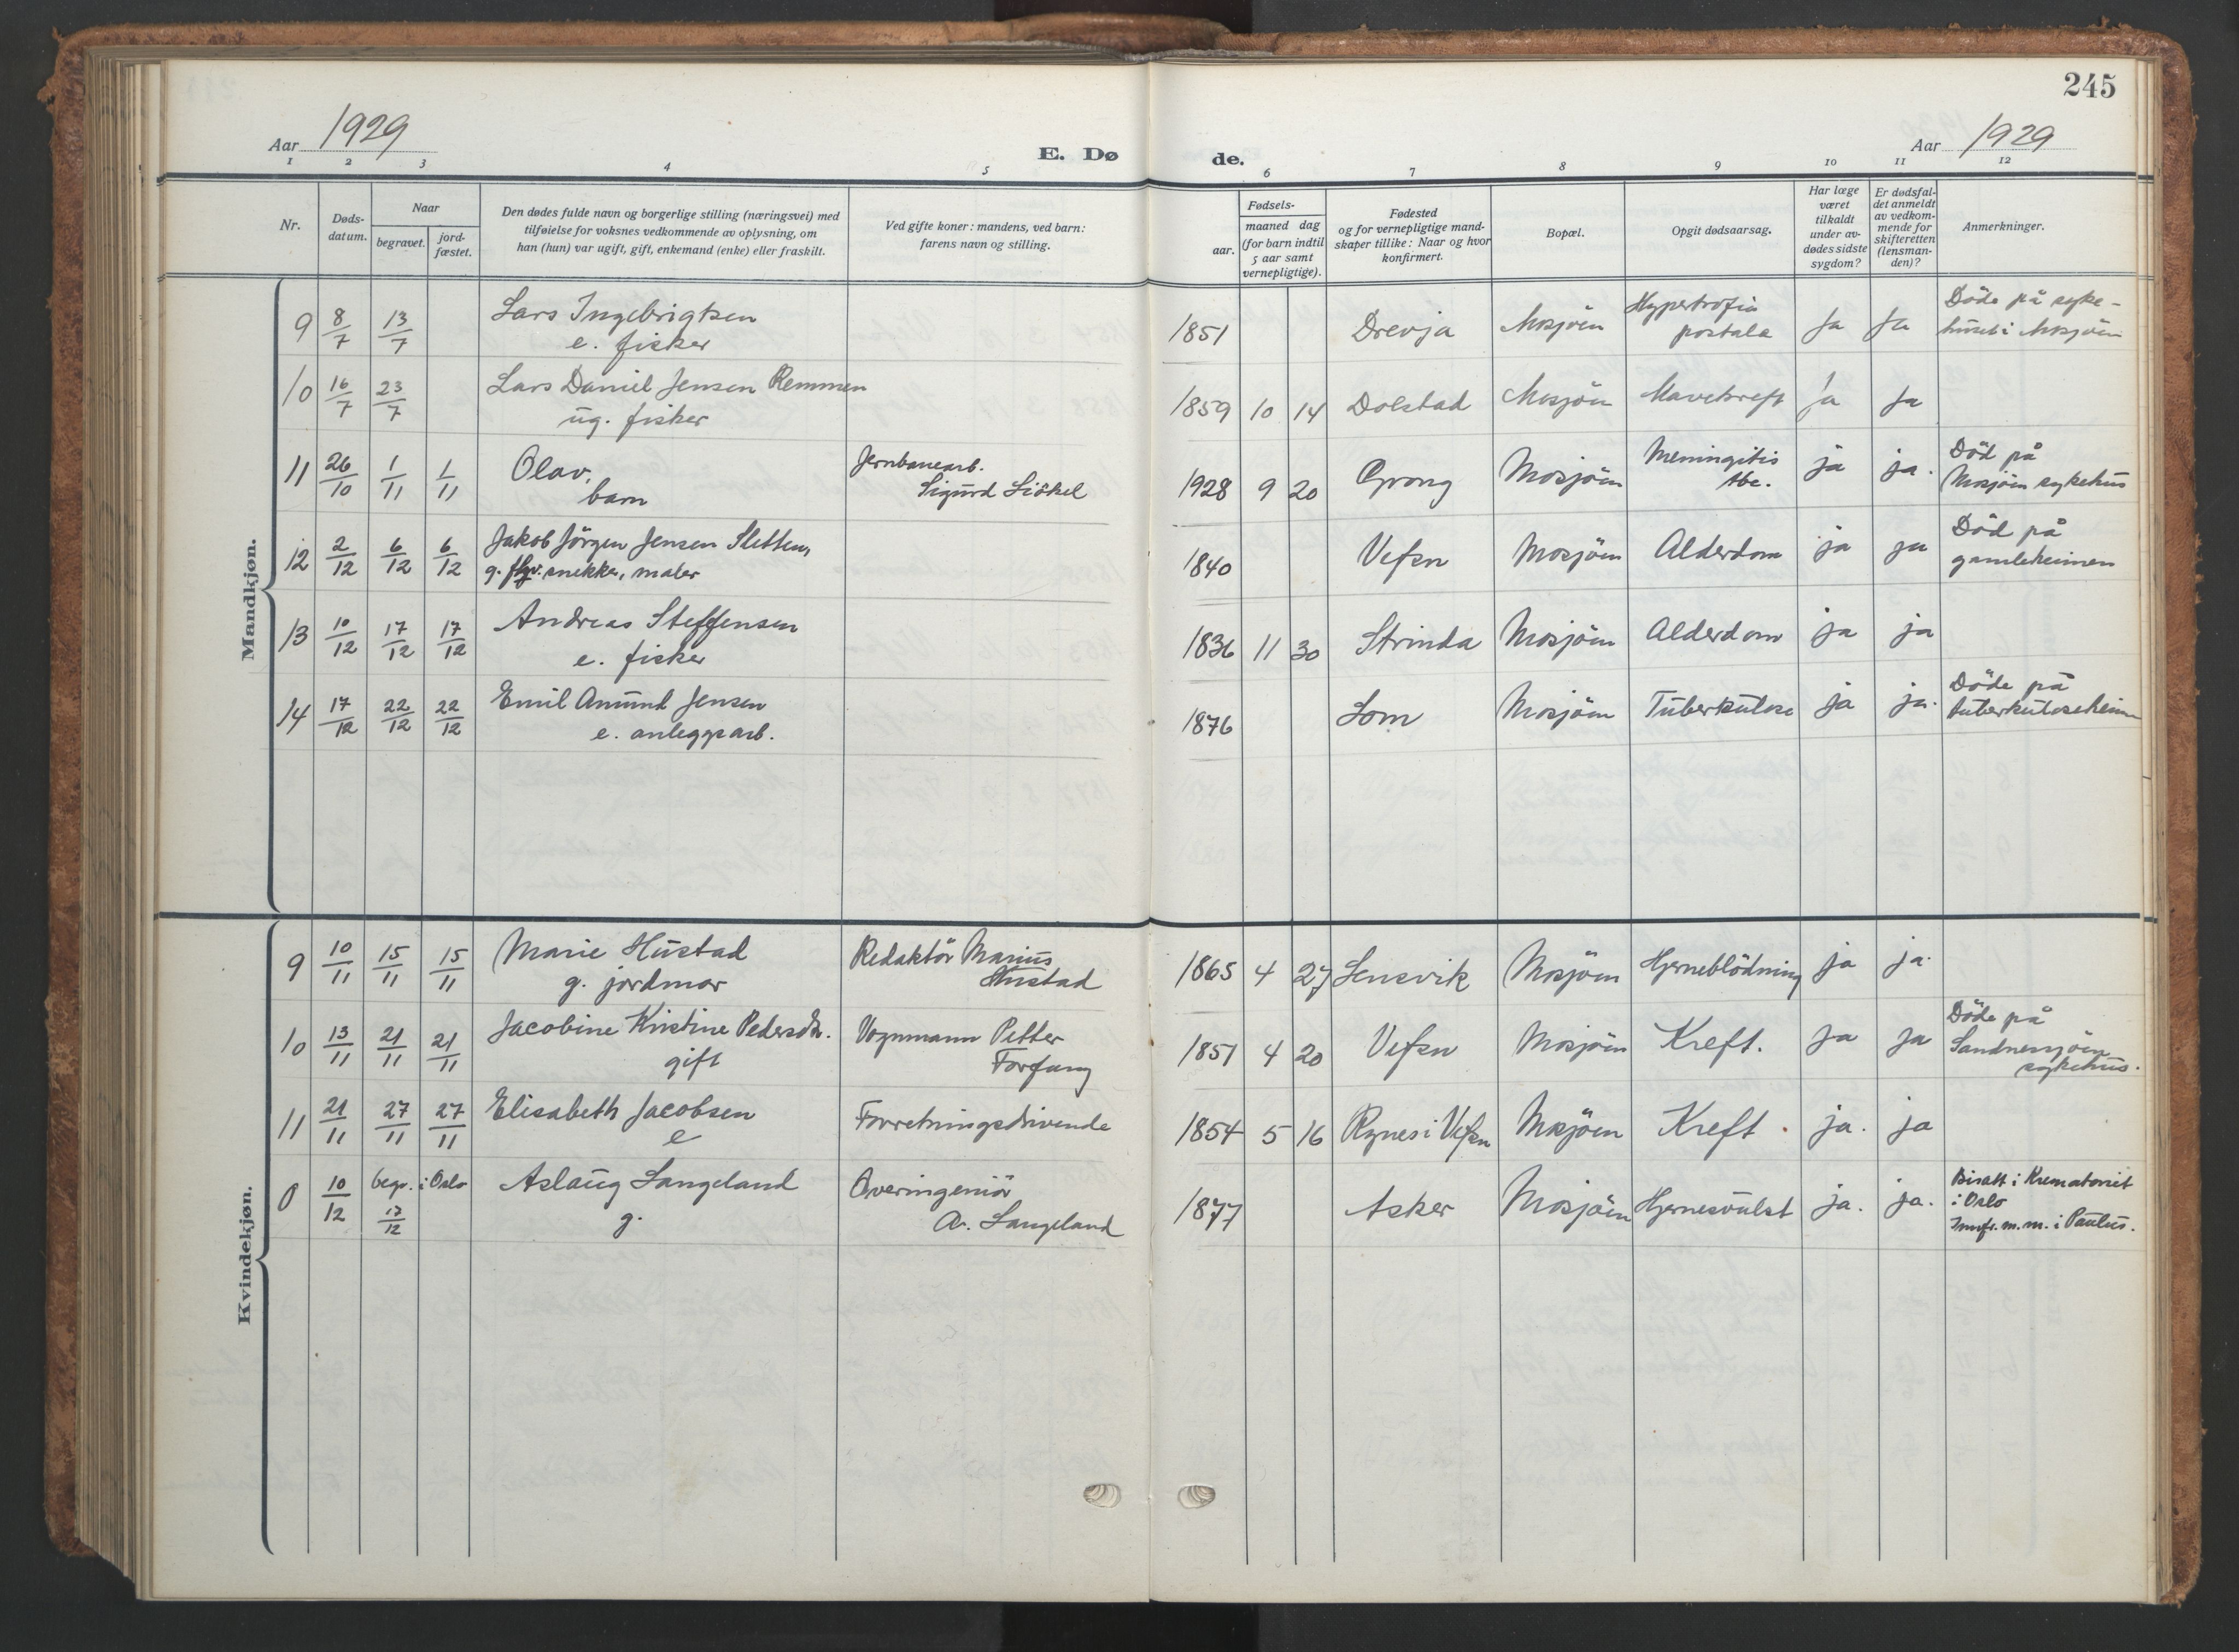 245
Aar 1929
E. Døde.
Aar 1929
1 2 3 4 5 6 7 8 9 10 11 12
Nr.
Døds-
datum.
Naar
begravet.
jord-
fæstet.
Den dødes fulde navn og borgerlige stilling (næringsvei) med
tilføielse for voksnes vedkommende av oplysning, om
han (hun) var ugift, gift, enkemand (enke) eller fraskilt.
Ved gifte koner: mandens, ved barn:
farens navn og stilling.
Fødsels-
aar.
maaned dag
(for barn indtil
5 aar samt
vernepligtige).
Fødested
og for vernepligtige mand-
skaper tillike: Naar og hvor
konfirmert.
Bopæl.
Opgit dødsaarsag.
Har læge
været
tilkaldt
under av-
dødes sidste
sygdom?
Er dødsfal-
det anmeldt
av vedkom-
mende for
skifteretten
(lensman-
den)?
Anmerkninger.
Mandkjøn.
9 8/7 13/7 Lars Ingebrigtsen
e. fisker
1851 Drevja Mosjöen Hypertrofia
postala
Ja Ja Döde på syke-
huset i Mosjöen
10 16/7 23/7 Lars Daniel Jensen Remmen
ug. fisker
1859 10 14 Dolstad Mosjöen Mavekreft Ja Ja
11 26/10 1/11 1/11 Olav,
barn
Jernbanearb.
Sigurd Liökel
1928 9 20 Grong Mosjöen Meningitis
tbc.
ja ja. Död på
Mosjöen sykehus
12 2/12 6/12 6/12 Jakob Jörgen Jensen Sletten,
g. snekker, maler
1840 Vefsn Mosjöen Alderdom ja ja Död på
gamleheimen
13 10/12 17/12 17/12 Andreas Steffensen
e. fisker
1836 11 30 Strinda Mosjöen Alderdom ja ja
14 17/12 22/12 22/12 Emil Amund Jensen
e. anleggsarb.
1876 Lom Mosjöen Tuberkulose ja ja. Döde på
tuberkuloseheim
Kvindekjøn.
9 10/11 15/11 15/11 Marie Hustad
g. jordmor
Redaktör Marius
Hustad
1865 4 27 Lensvik Mosjöen Hjerneblödning ja ja.
10 13/11 21/11 21/11 Jacobine Kristine Pedersdtr.
gift
Vognmann Petter
Forfang
1851 4 20 Vefsn Mosjöen Kreft. ja ja Döde på
Sandnessjöen
sykehus.
11 21/11 27/11 27/11 Elisabeth Jacobsen
e
Forretningsdrivende
1854 5 16 Rynes i Vefsn Mosjöen Kreft. ja. ja
0 10/12 begr. i Oslo
17/12
Aslaug Langeland
g.
Overingeniör
A. Langeland
1877 Asker Mosjöen Hjernesvulst ja. ja. Bisatt i Krematoriet
i Oslo
Innf. m. m. i Paulus.